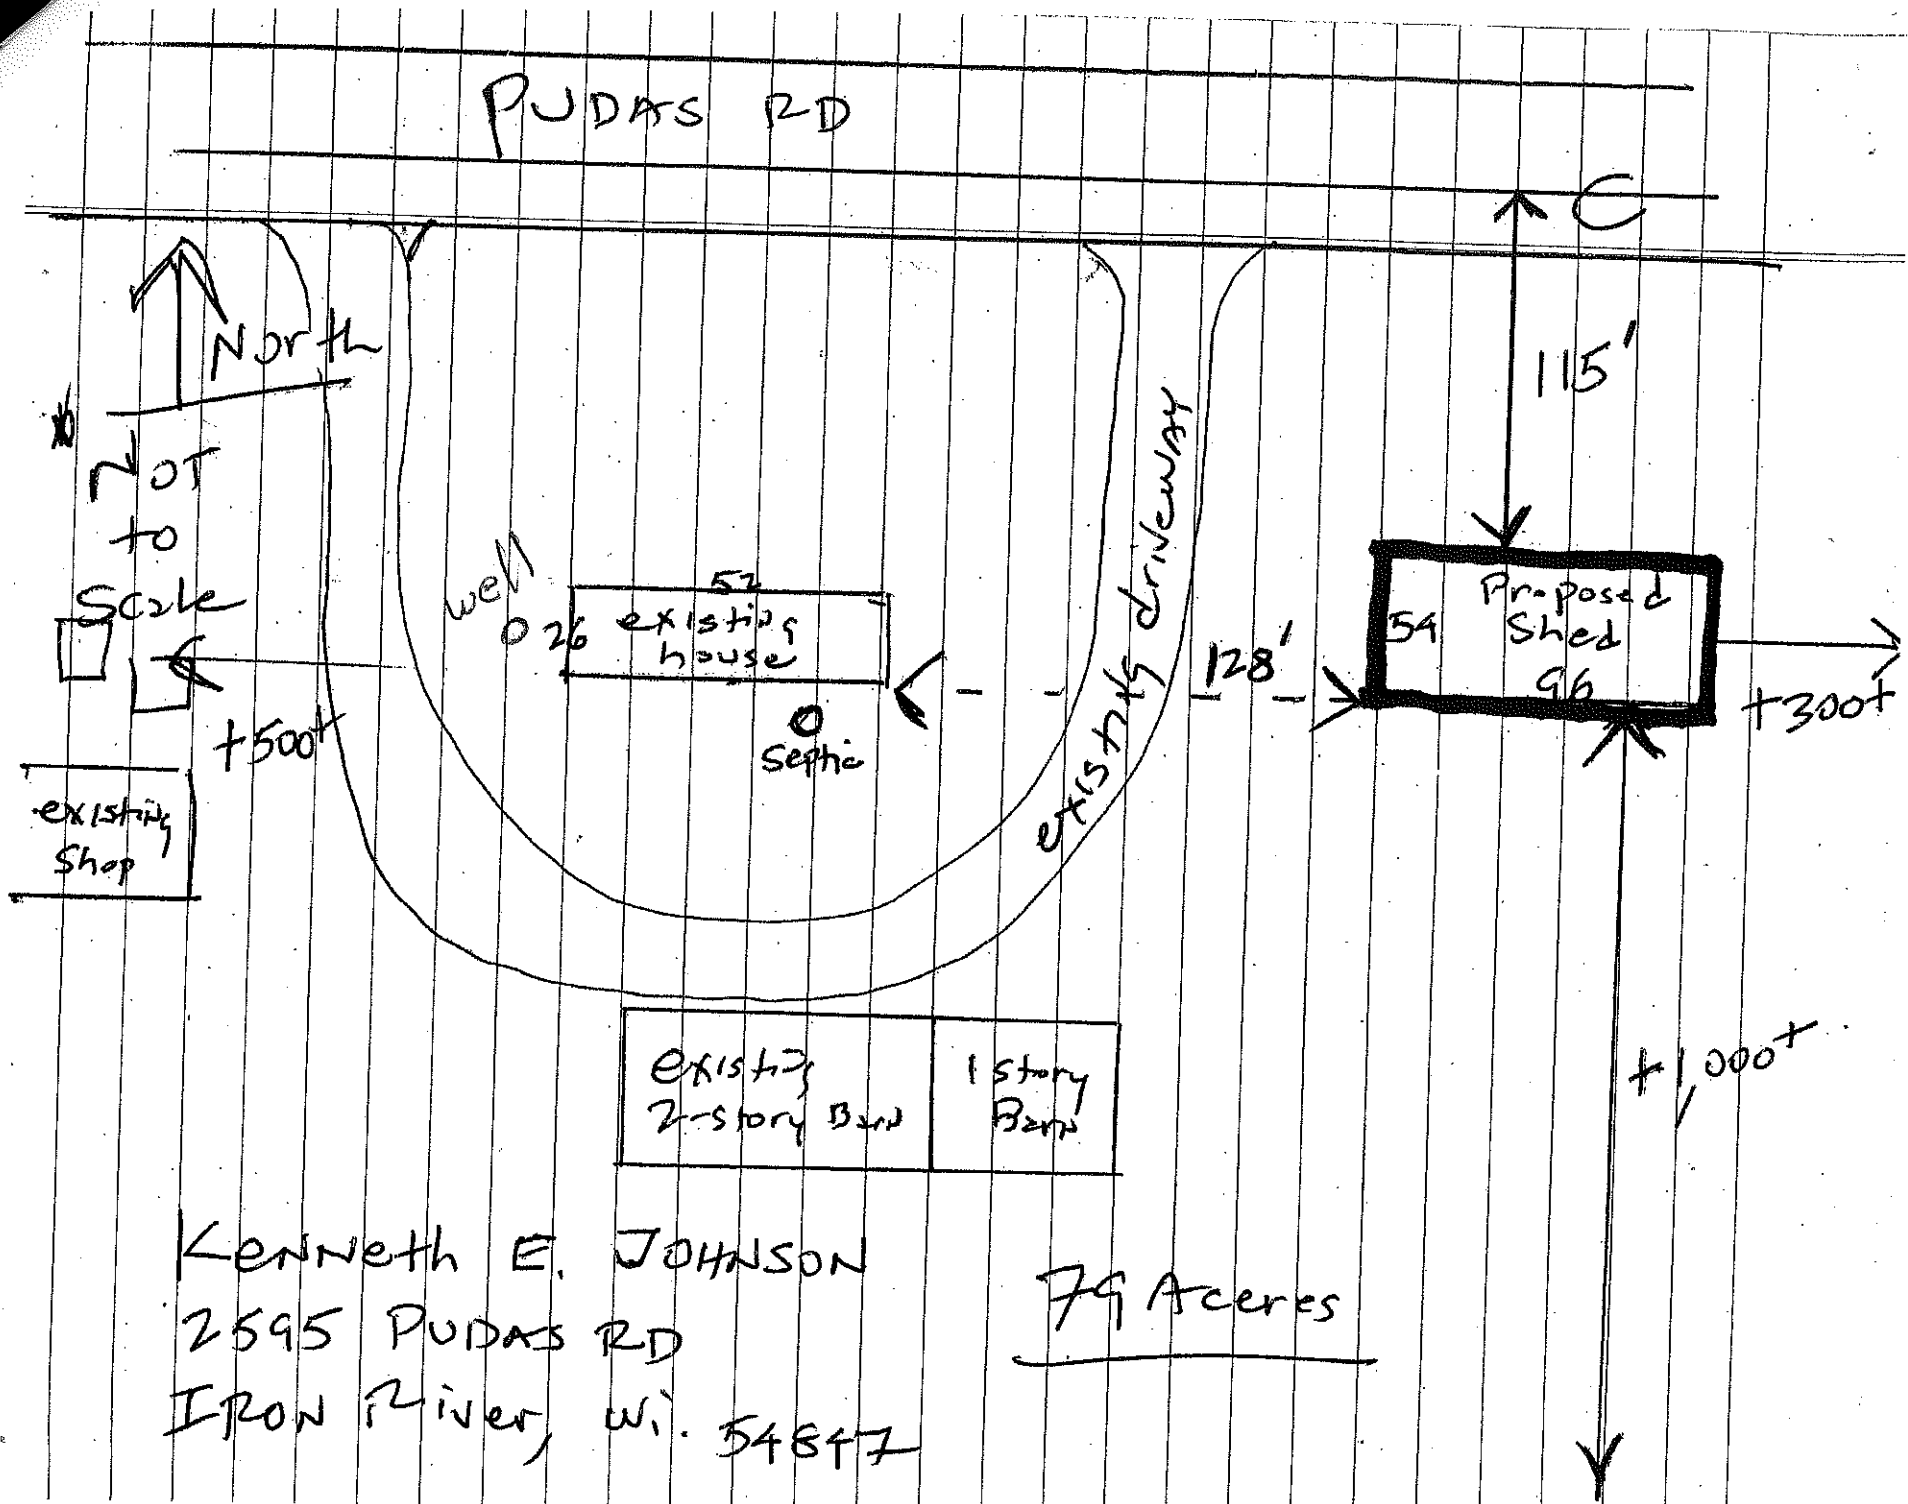 PUDAS RD
C
North
115'
NOT
to
Scale
well
52
26
existing
house
existing driveway
128'
Proposed
Shed
54
96
+300+
+500+
septic
existing
Shop
existing
2-story Barn
1 story
Barn
+1,000+
Kenneth E. JOHNSON
2595 PUDAS RD
IRON River, Wi. 54847
79 Aceres